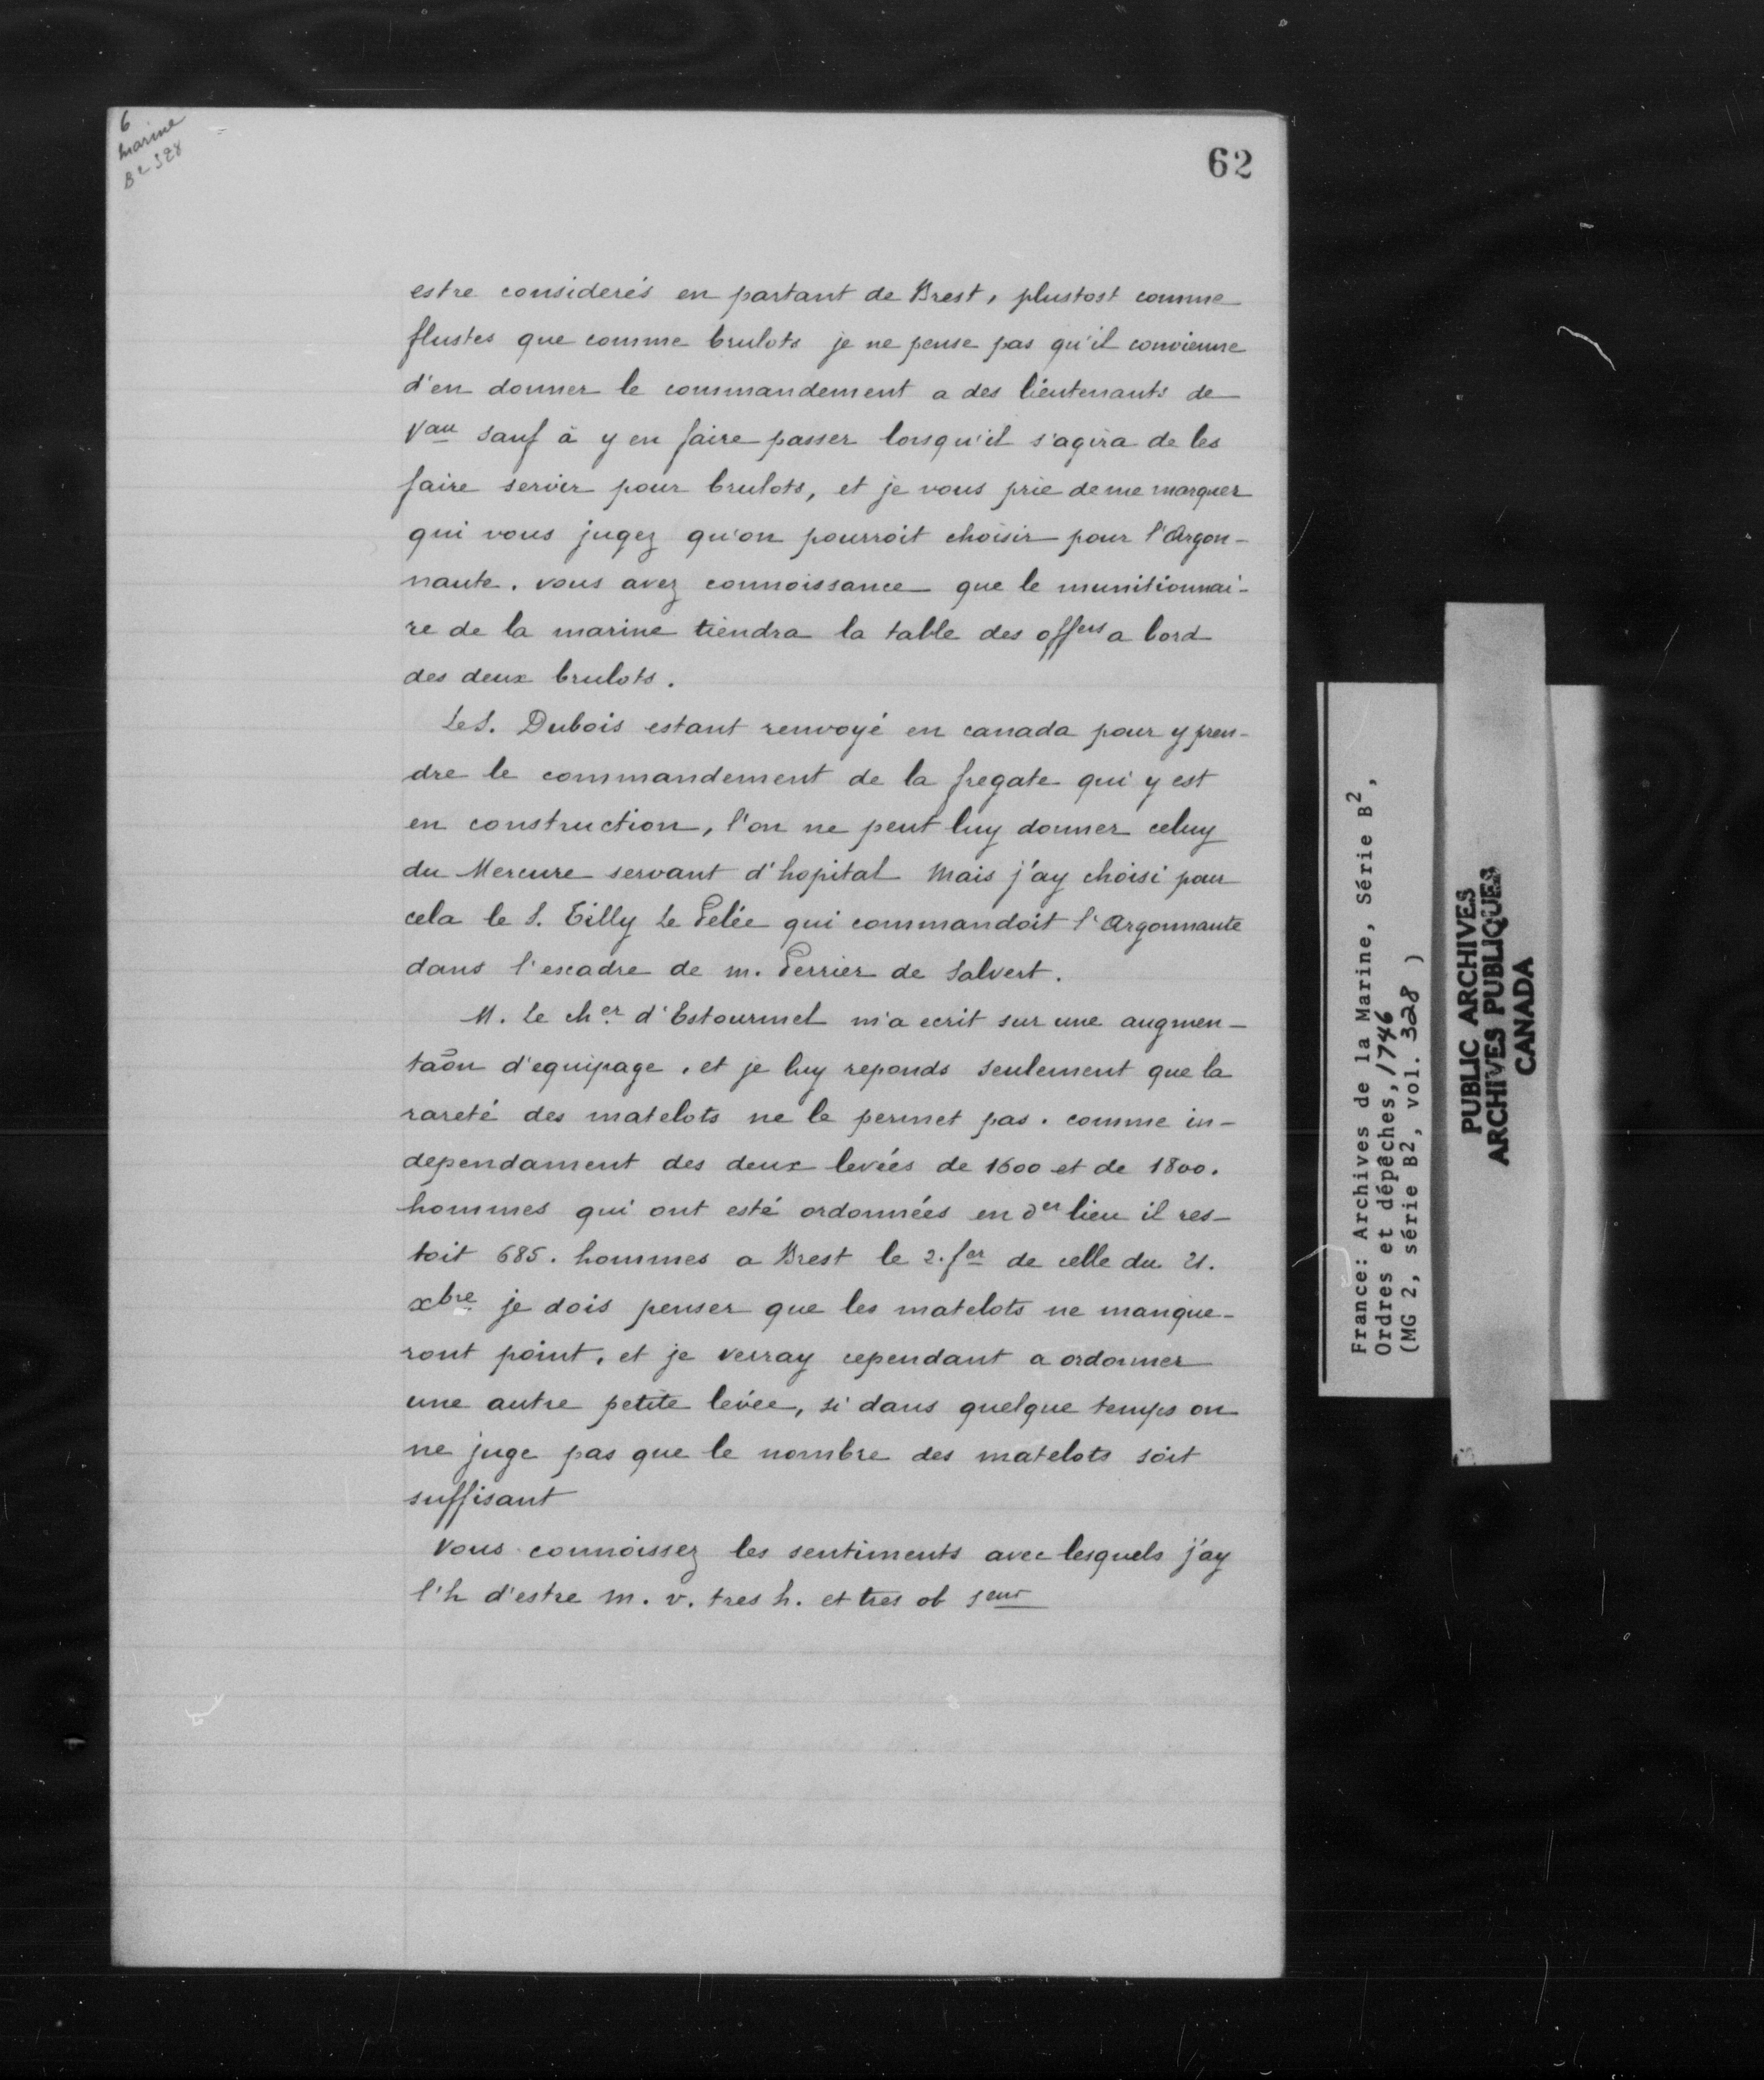 6
marine
B2 328
62
estre considerés en partant de Brest, plustost comme
flustes que comme brulots je ne pense pas qu'il convienne
d'en donner le commandement a des lieutenants de
Vau sauf à y en faire passer lorsqu'il s'agira de les
faire servir pour brulots, et je vous prie de me marquer
qui vous jugez qu'on pourroit choisir pour l'Argon-
naute. vous avez connoissance que le munitionnai-
re de la marine tiendra la table des offers a bord
des deux brulots.
Le S. Dubois estant renvoyé en canada pour y pren-
dre le commandement de la fregate qui y est
en construction, l'on ne peut luy donner celuy
du Mercure servant d'hopital Mais j'ay choisi pour
cela le S. Tilly Le Pelée qui commandoit l'Argonnaute
dans l'escadre de m. Perrier de Salvert.
M. Le cher d'Estourmel m'a ecrit sur une augmen-
taõn d'equipage, et je luy reponds seulement que la
rareté des matelots ne le permet pas. comme in-
dependament des deux levées de 1600 et de 1800.
hommes qui ont esté ordonnées en der lieu il res-
toit 685. hommes a Brest le 2. fer de celle du 21.
xbre je dois penser que les matelots ne manque-
ront point, et je verray cependant a ordonner
une autre petite levée, si dans quelque temps on
ne juge pas que le nombre des matelots soit
suffisant
Vous connoissez les sentiments avec lesquels j'ay
l'h d'estre m. v. tres h. et tres ob seur
France: Archives de la Marine, Série B2,
Ordres et dépêches, 1746
(MG 2, série B2, vol. 328 )
PUBLIC ARCHIVES
ARCHIVES PUBLIQUES
CANADA